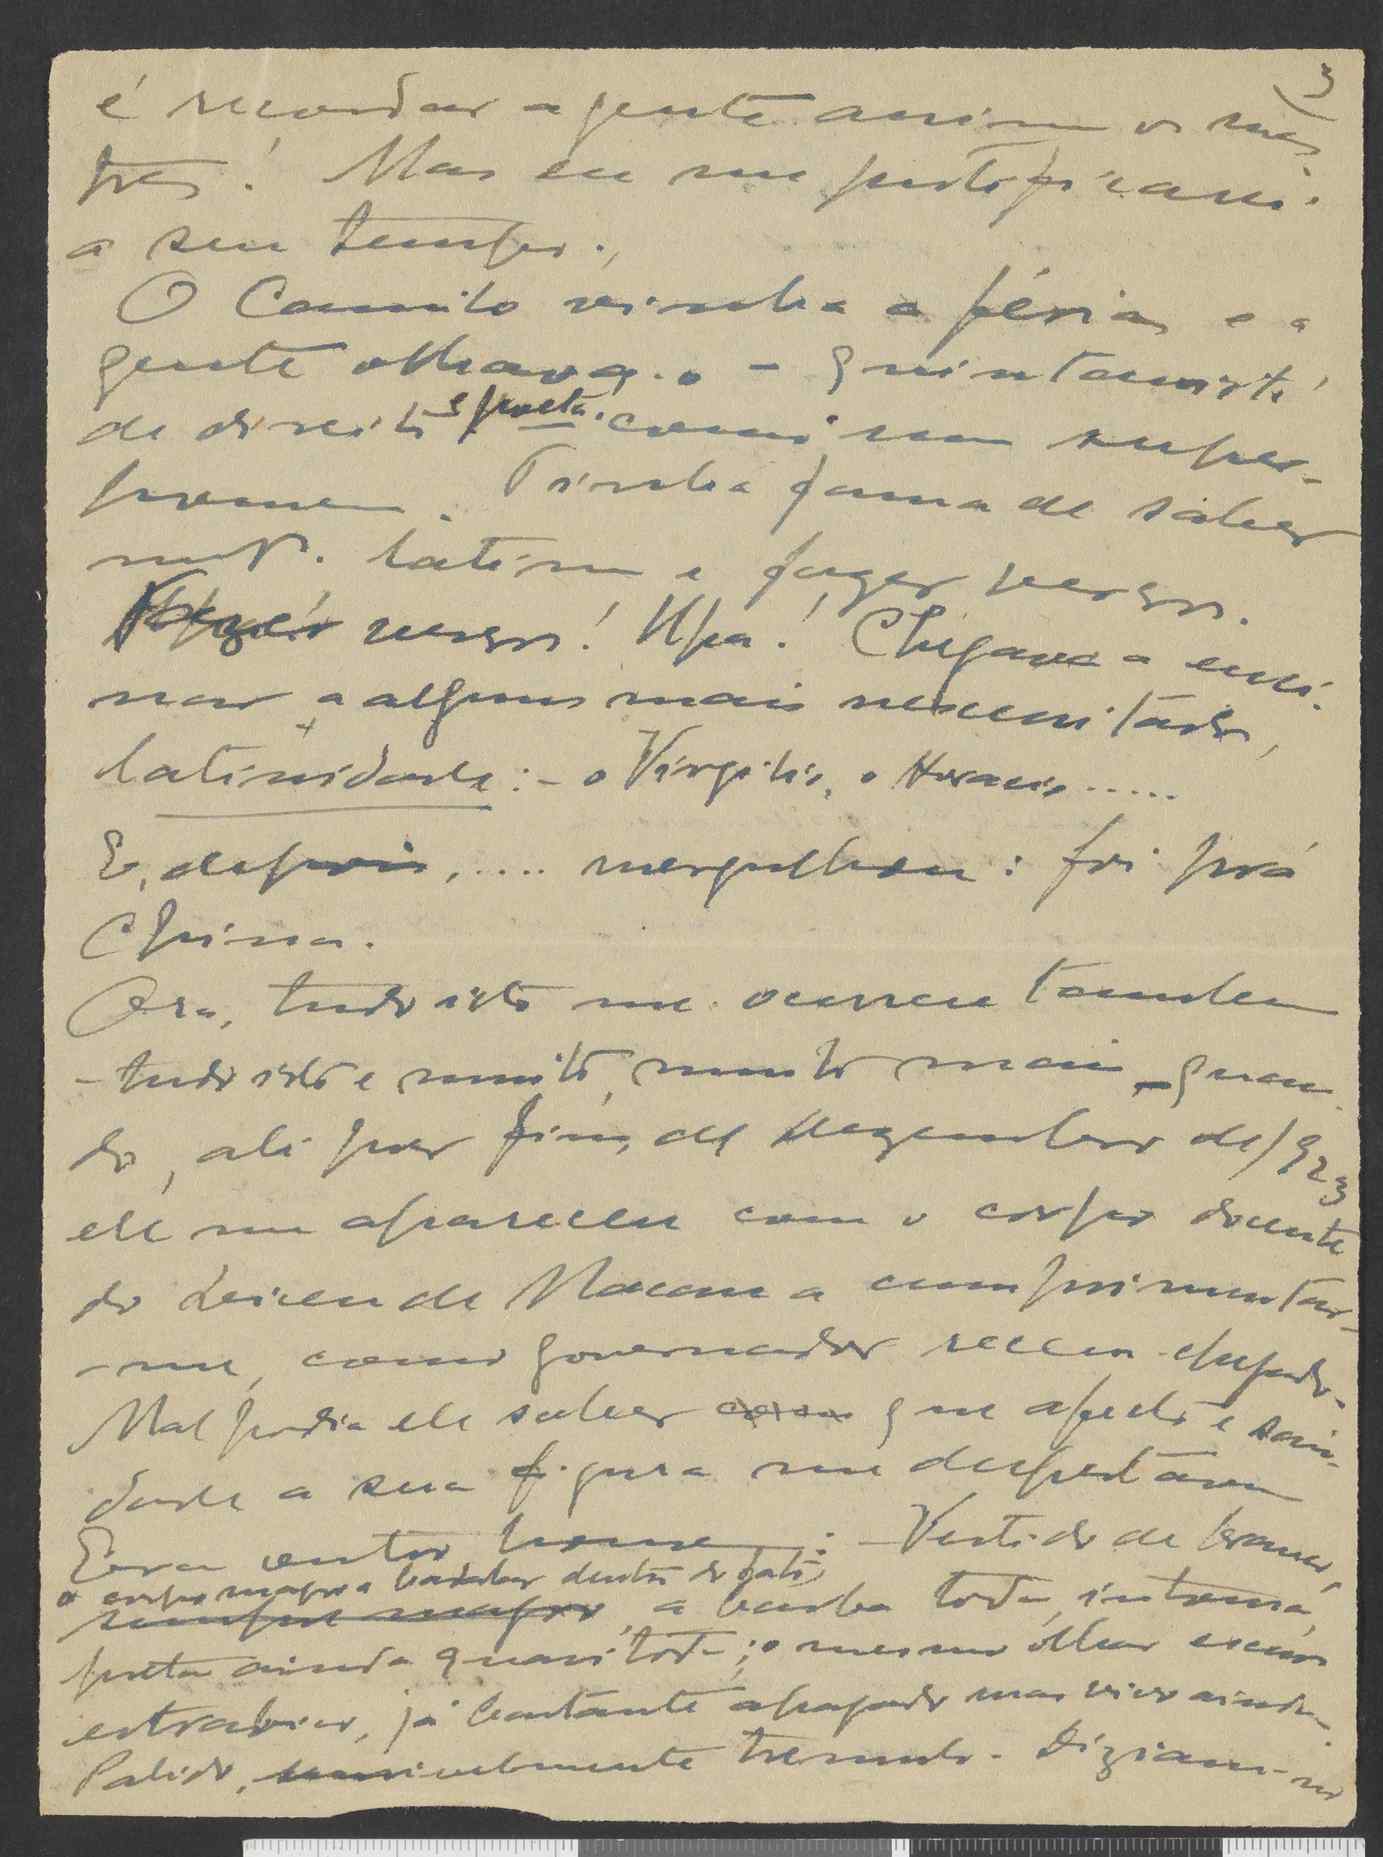 3
é recordar a gente assim os mes
tres! Mas eu me justificarei
a seu tempo.
O Camilo vinha a férias e a
gente olhava-o - quintanista
de direito e poeta, como um super-
homem. Tinha fama de saber
mto. latim e fazer versos.
versos! Upa! Chegava a ensi-
nar a alguns mais necessitados,
latinidade: - o Virgilio, o Horacio.....
E, depois, .... mergulhou: foi prá
China.
Ora, tudo isto me ocorreu tambem
- tudo isto e muito, muito mais - quan-
do, ali por fins de Dezembro de 1923
ele me apareceu com o corpo docente
do Liceu de Macau a cumprimentar-
-me, como governador recem-chegado.
Mal podia ele saber que afecto e sau-
dade a sua figura me despertava
Era outro homem: - Vestido de branco,
o corpo magro a bailar dentro do fato,
sempre magro, a barba toda, intonsa,
preta ainda quasi toda; o mesmo olhar escuro
estrabico, já bastante apagado mas vivo ainda.
Palido, sensivelmente tremulo. Diziam-no